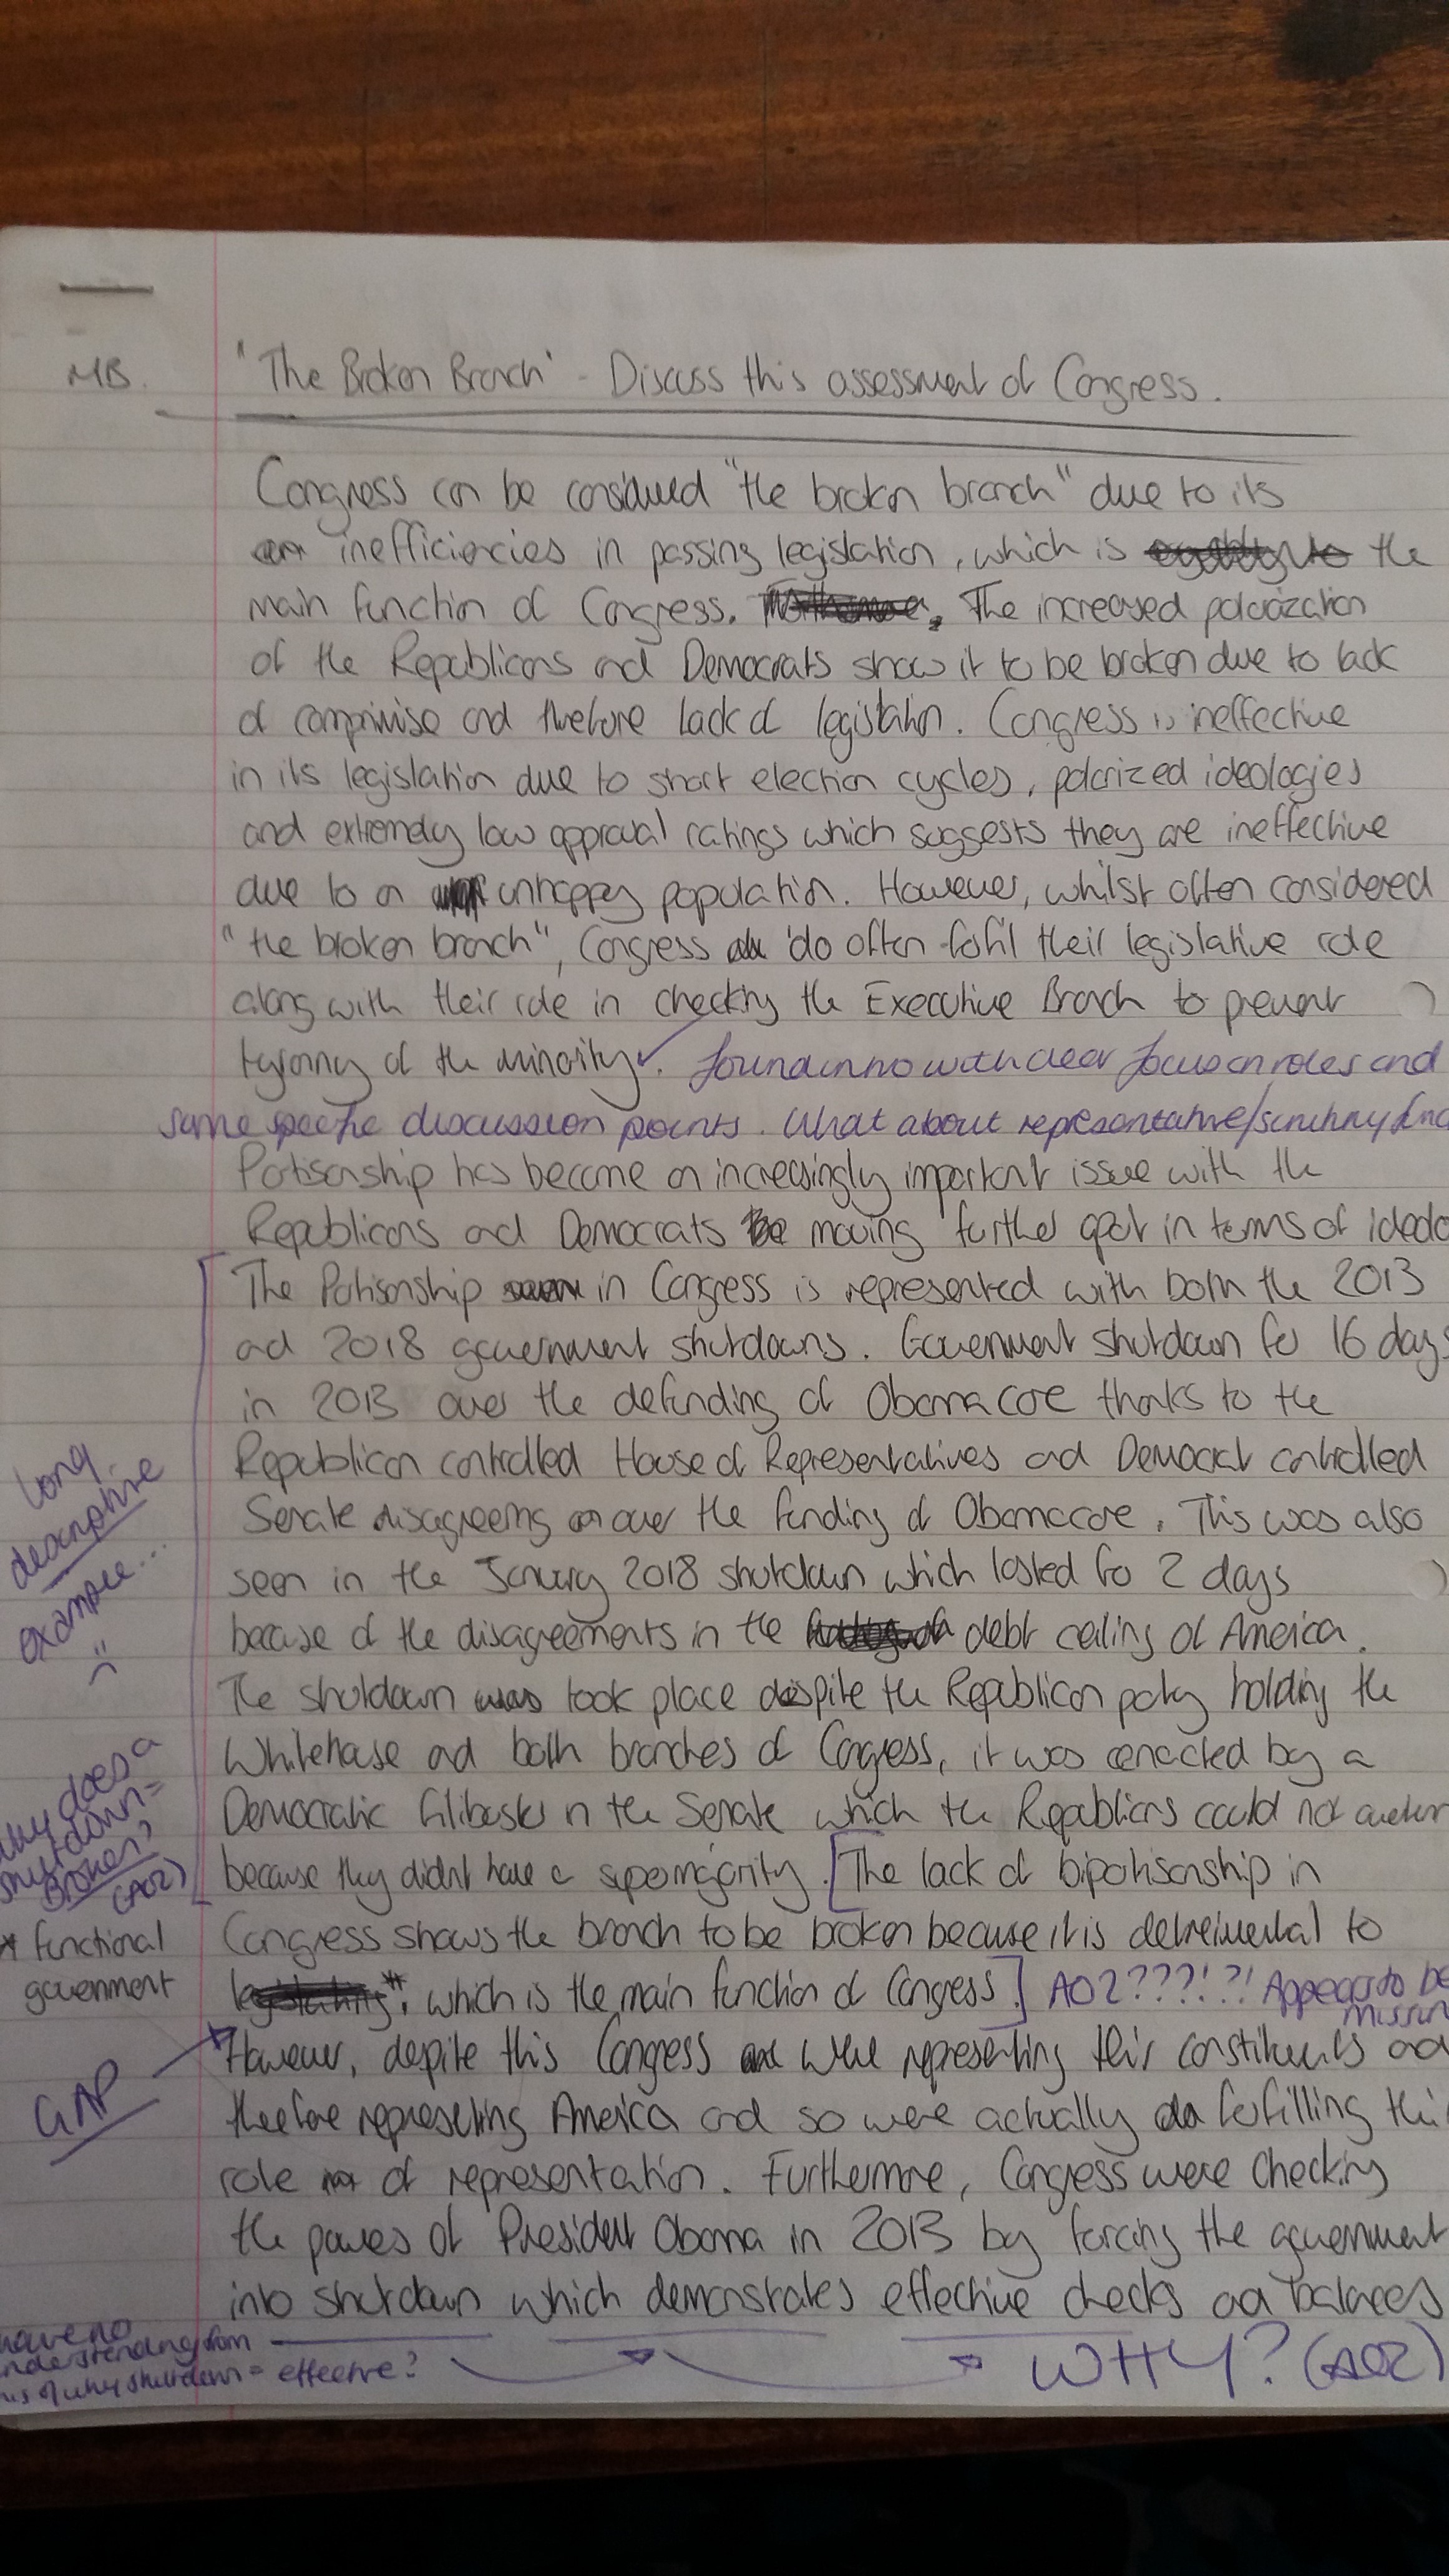 MB. "The Broken Branch" - Discuss this assessment of Congress.
Congress can be considered "the broken branch" due to its
inefficiencies in passing legislation, which is the
main function of Congress. The increased polarization
of the Republicans and Democrats show it to be broken due to lack
of compromise and therefore lack of legislation. Congress is ineffective
in its legislation due to short election cycles, polarized ideologies
and extremely low approval ratings which suggests they are ineffective
due to a unhappy population. However, whilst often considered
"the broken branch", Congress do often fofil their legislative role
along with their role in checking the Executive Branch to prevent
tyranny of the minority. with clear focus on roles and
some specific discussion points. What about representative/scrutiny
Partisanship has become an increasingly important issue with the
Republicans and Democrats moving further apart in terms of
The Partisanship in Congress is represented with both the 2013
and 2018 government shutdowns. Government shutdown for 16 days
in 2013 over the defunding of Obamacare thanks to the
Republican controlled House of Representatives and Democrat controlled
Senate disagreeing over the funding of Obamacare. This was also
seen in the January 2018 shutdown which lasted for 2 days
because of the disagreements in the debt ceiling of America.
The shutdown took place despite the Republican party holding the
Whitehouse and both branches of Congress, it was enacted by a
Democratic filibuster in the Senate which the Republicans could not
because they didnt have a supermajority. [The lack of bipartisanship in
Congress shows the branch to be broken because it is detrimental to
*, which is the main function of Congress.] AO2???!?! Appears to be
missing
However, despite this Congress were representing their constituents and
therefore representing America and so were actually fofilling
role of representation. Furthermore, Congress were checking
the powers of President Obama in 2013 by forcing the government
into shutdown which demonstrates effective checks and balances
Long
descriptive
example...
:(
Why does a
shutdown =
broken?
(AO2)
* functional
government
GAP
have no
understanding from
this of why shutdown = effective?
WHY? (AO2)